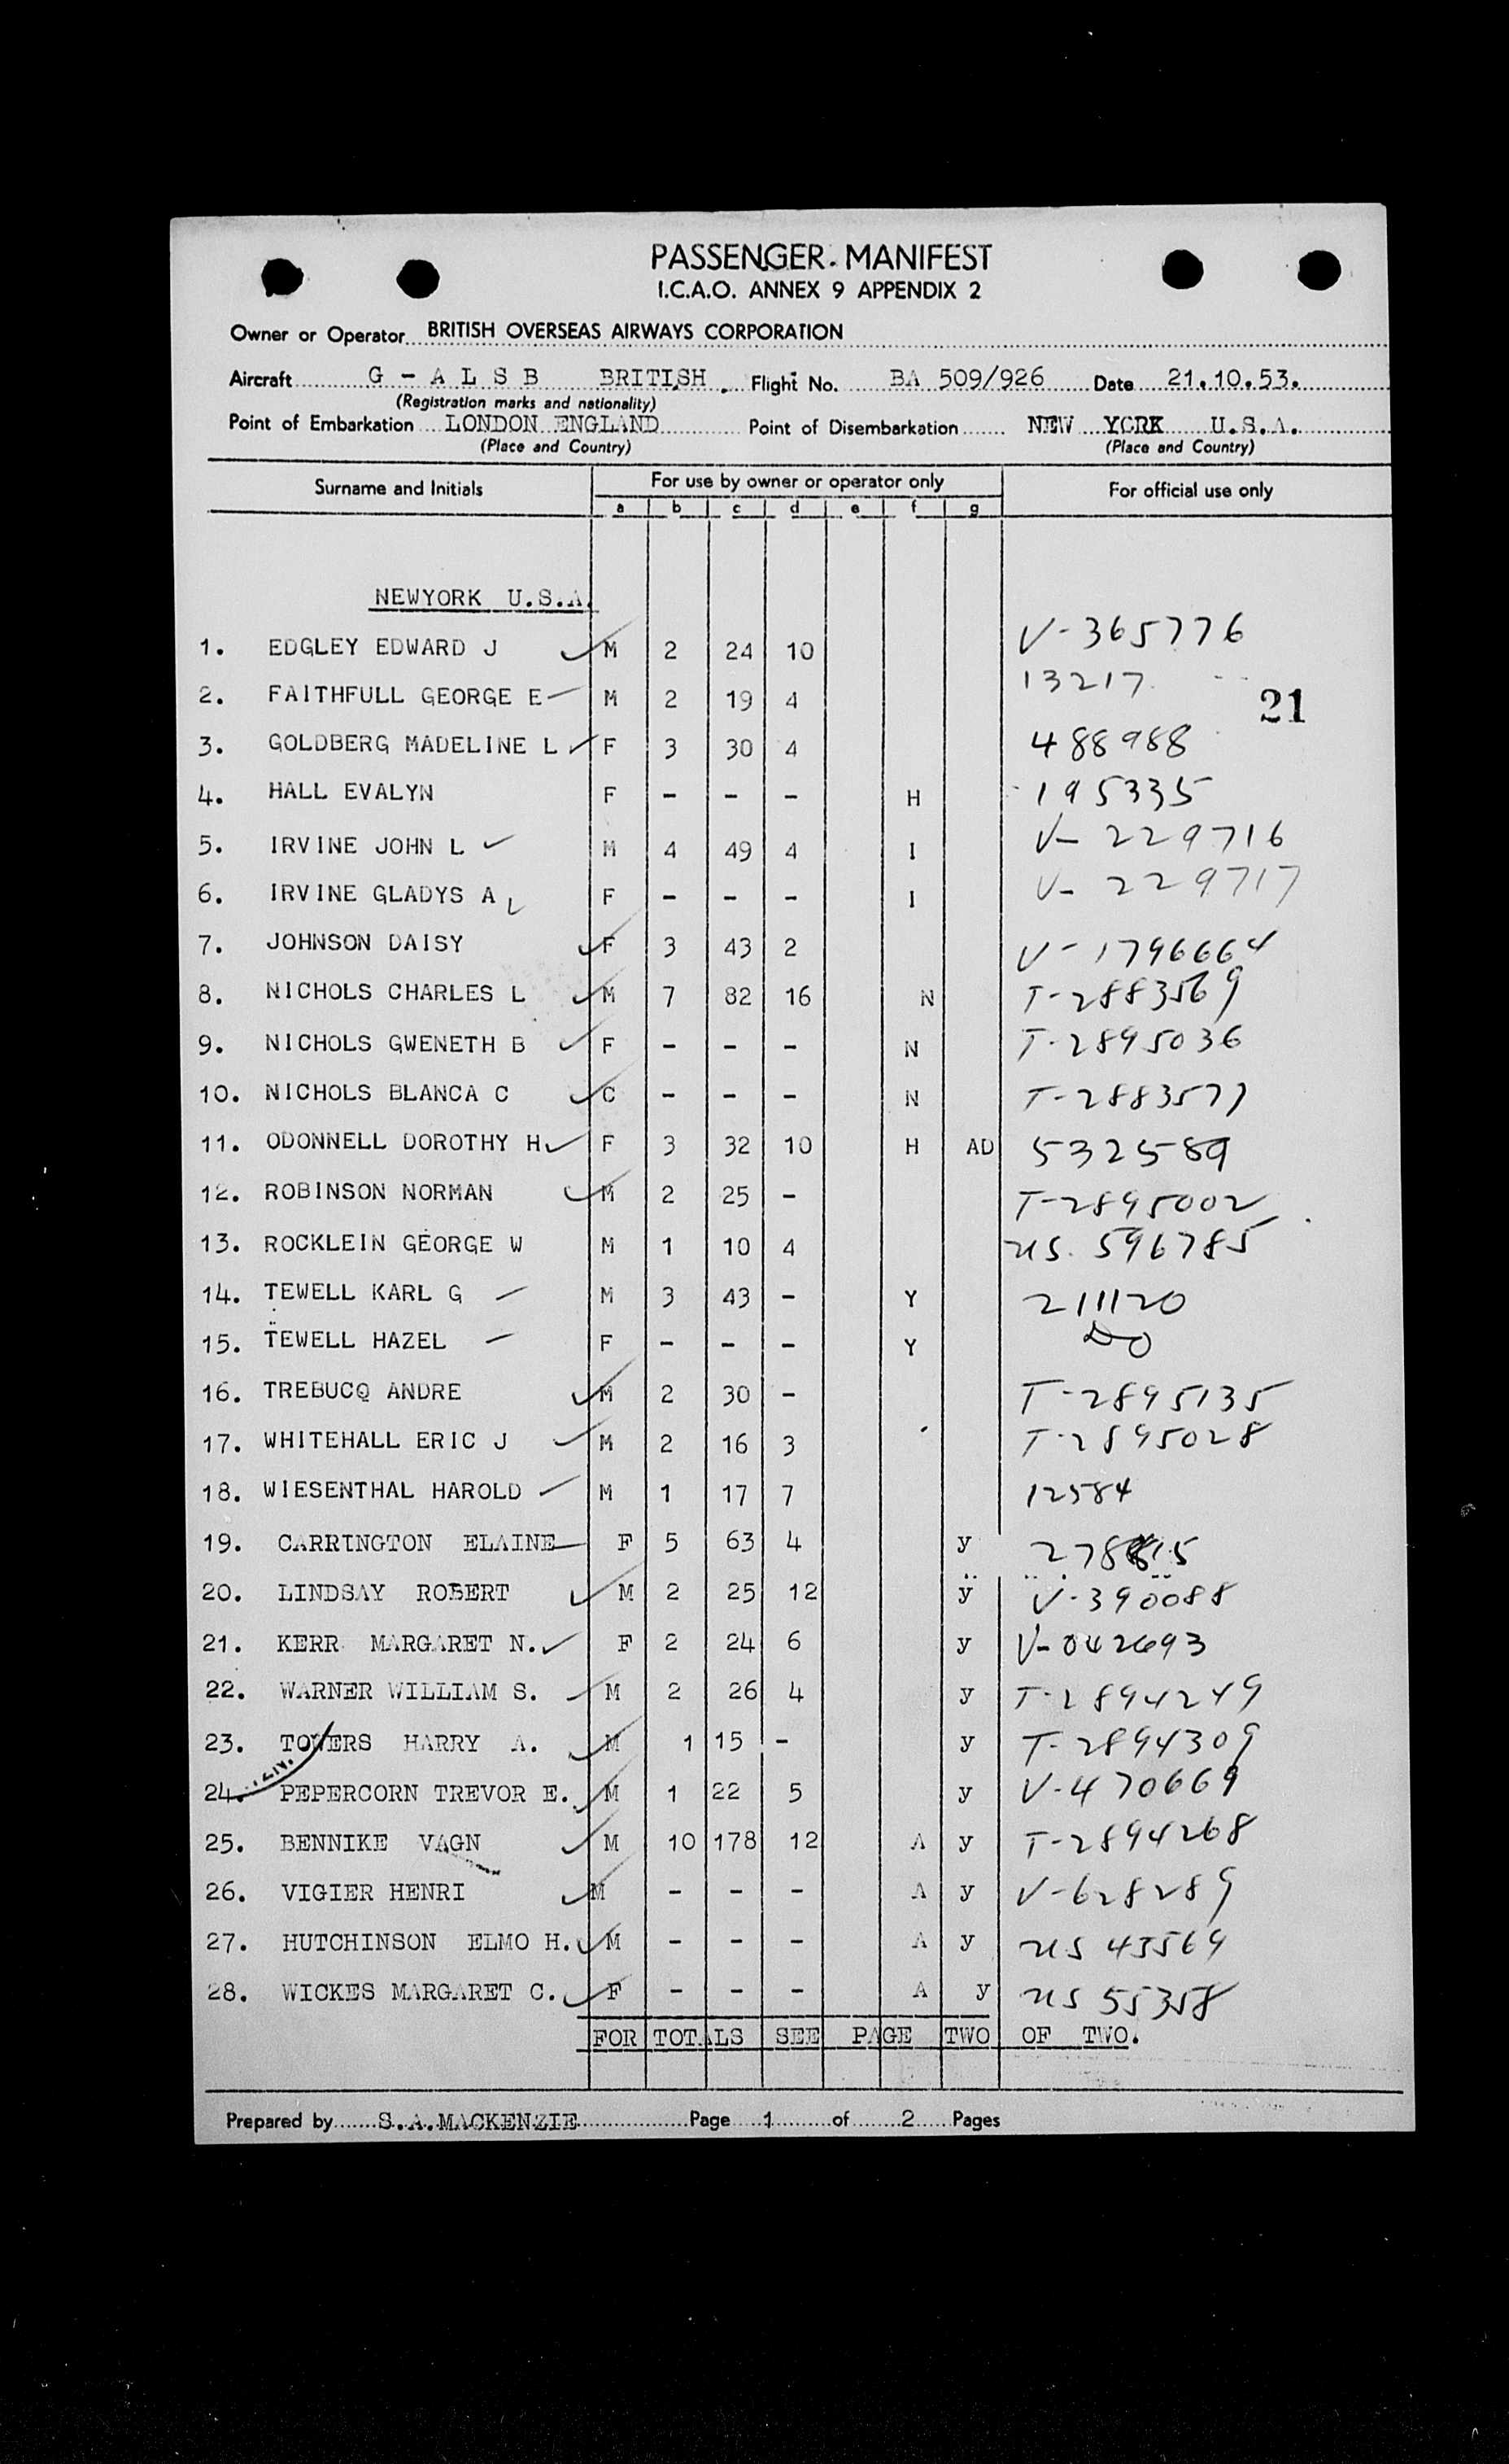 PASSENGER MANIFEST
I.C.A.O. ANNEX 9 APPENDIX 2
Owner or Operator BRITISH OVERSEAS AIRWAYS CORPORATION
Aircraft G - A L S B BRITISH Flight No. BA 509/926 Date 21.10.53.
(Registration marks and nationality)
Point of Embarkation LONDON ENGLAND Point of Disembarkation NEW YORK U.S.A.
(Place and Country) (Place and Country)
Surname and Initials For use by owner or operator only For official use only
a b c d e f g
NEWYORK U.S.A.
1. EDGLEY EDWARD J M 2 24 10 V-365776
2. FAITHFULL GEORGE E M 2 19 4 13217
21
3. GOLDBERG MADELINE L F 3 30 4 488988
4. HALL EVALYN F - - - H 195335
5. IRVINE JOHN L M 4 49 4 I V- 229716
6. IRVINE GLADYS A F - - - I V- 229717
7. JOHNSON DAISY F 3 43 2 V-1796664
8. NICHOLS CHARLES L M 7 82 16 N T-2883569
9. NICHOLS GWENETH B F - - - N T-2895036
10. NICHOLS BLANCA C C - - - N T-2883577
11. ODONNELL DOROTHY H F 3 32 10 H AD 532589
12. ROBINSON NORMAN M 2 25 - T-2895002
13. ROCKLEIN GEORGE W M 1 10 4 US. 596785
14. TEWELL KARL G M 3 43 - Y 211120
15. TEWELL HAZEL F - - - Y DO
16. TREBUCQ ANDRE M 2 30 - T-2895135
17. WHITEHALL ERIC J M 2 16 3 T-2895028
18. WIESENTHAL HAROLD M 1 17 7 12584
19. CARRINGTON ELAINE F 5 63 4 y
20. LINDSAY ROBERT M 2 25 12 y V-390088
21. KERR MARGARET N. F 2 24 6 y V-042693
22. WARNER WILLIAM S. M 2 26 4 y T-2894249
23. TOWERS HARRY A. M 1 15 - y T-2894309
24. PEPERCORN TREVOR E. M 1 22 5 y V-470669
25. BENNIKE VAGN M 10 178 12 A y T-2894268
26. VIGIER HENRI M - - - A y V-628289
27. HUTCHINSON ELMO H. M - - - A y US 43569
28. WICKES MARGARET C. F - - - A y US 55358
FOR TOTALS SEE PAGE TWO OF TWO.
Prepared by S.A.MACKENZIE Page 1 of 2 Pages